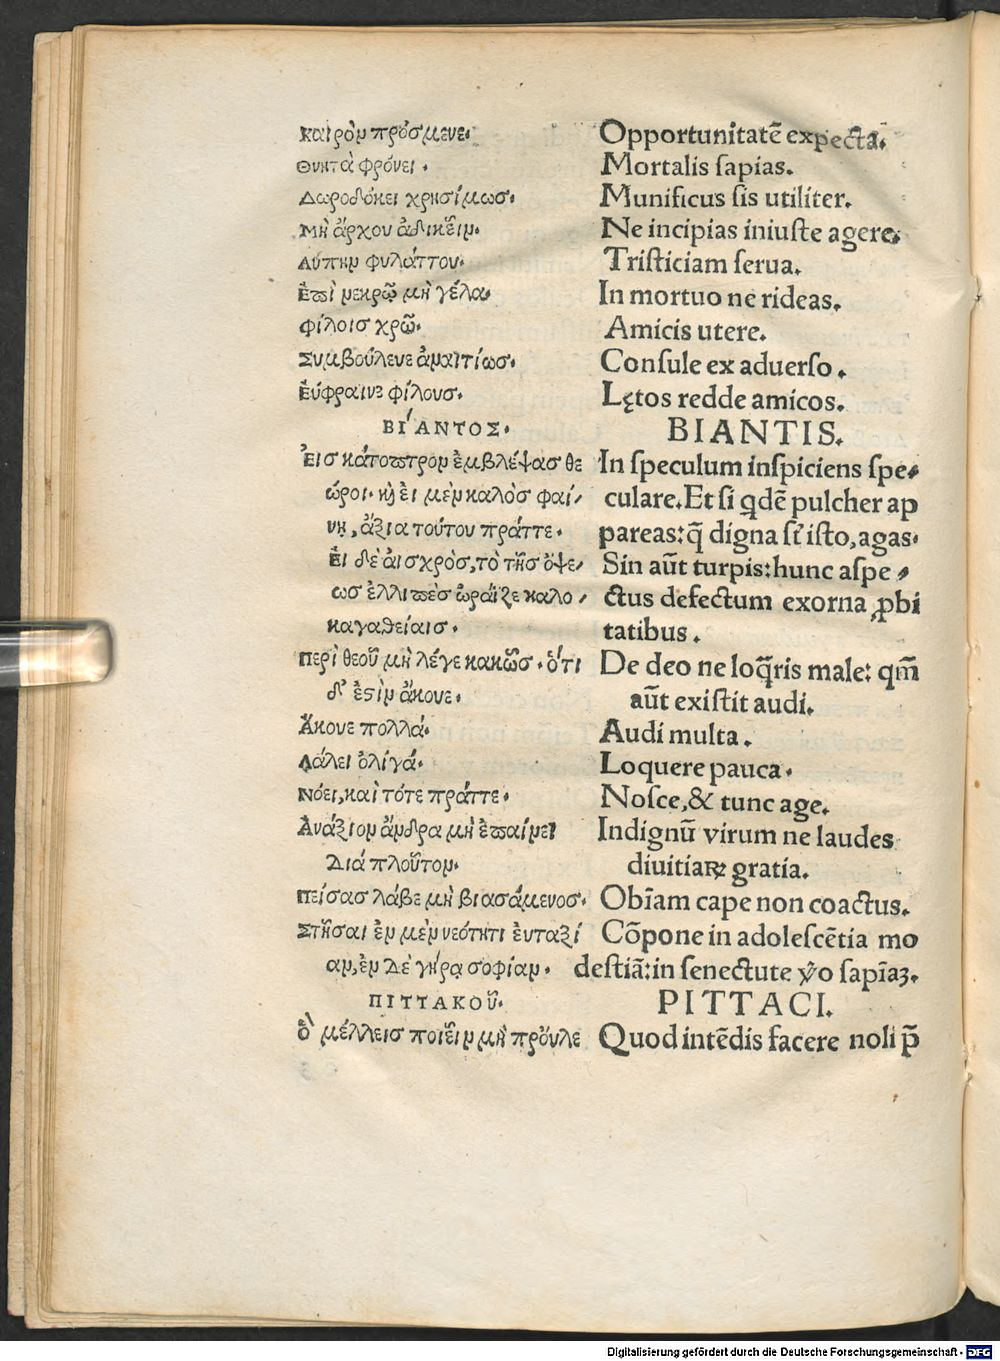 καιρὸν πρόσμενε.
Θνητὰ φρόνει.
Δωροδόκει χρησίμωσ.
Μὴ ἄρχου ἀδικεῖν.
Λύπην φυλάττου.
Ἐπὶ νεκρῷ μὴ γέλα.
φίλοισ χρῶ.
Συμβούλευε ἀναιτίωσ.
Εὔφραινε φίλουσ.
ΒΙ´ΑΝΤΟΣ.
Ἐισ κάτοπτρον ἐμβλέψασ θε
ώρει. κ̀ ἐι μὲν καλὸσ φαί/
νῃ, ἄξια τούτου πράττε.
Ἐι δὲ ἀισχρὸσ, τὸ τῆσ ὄψε/
ωσ ἐλλιπὲσ ὡράϊζε καλο/
καγαθείαισ.
Περὶ θεοῦ μὴ λέγε κακῶσ. ὅτι
δ' ἐϛὶν ἄκουε.
Ἄκουε πολλά.
Λάλει ὀλίγά.
Νόει, καὶ τότε πράττε.
Ἀνάξιον ἄνδρα μὴ ἐπαίνει
Διά πλοῦτον.
Πείσασ λάβε μὴ βιασάμενοσ.
Στῆσαι ἐν μὲν νεότητι ἐυταξί
αν, ἐν Δὲ γήρᾳ σοφίαν.
ΠΙΤΤΑΚΟΥ͂.
Ὃ μέλλεισ ποιεῖν μὴ πρόυλε
Opportunitatē expecta.
Mortalis sapias.
Munificus sis utiliter.
Ne incipias iniuste agere.
Tristiciam serua.
In mortuo ne rideas.
Amicis utere.
Consule ex aduerso.
Lętos redde amicos.
BIANTIS.
In speculum inspiciens spe/
culare. Et si qdē pulcher ap
pareas: q̄ digna sūt isto, agas.
Sin aūt turpis: hunc aspe/
ctus defectum exorna ꝓbi
tatibus.
De deo ne loq̄ris male: qm̄
aūt existit audi.
Audi multa.
Loquere pauca.
Nosce, & tunc age.
Indignū virum ne laudes
diuitiaꝝ gratia.
Obīam cape non coactus.
Cōpone in adolescētia mo
destiā: in senectute v̊o sapīaꝫ.
PITTACI.
Quod intēdis facere noli p̄
Digitalisierung gefördert durch die Deutsche Forschungsgemeinschaft - DFG